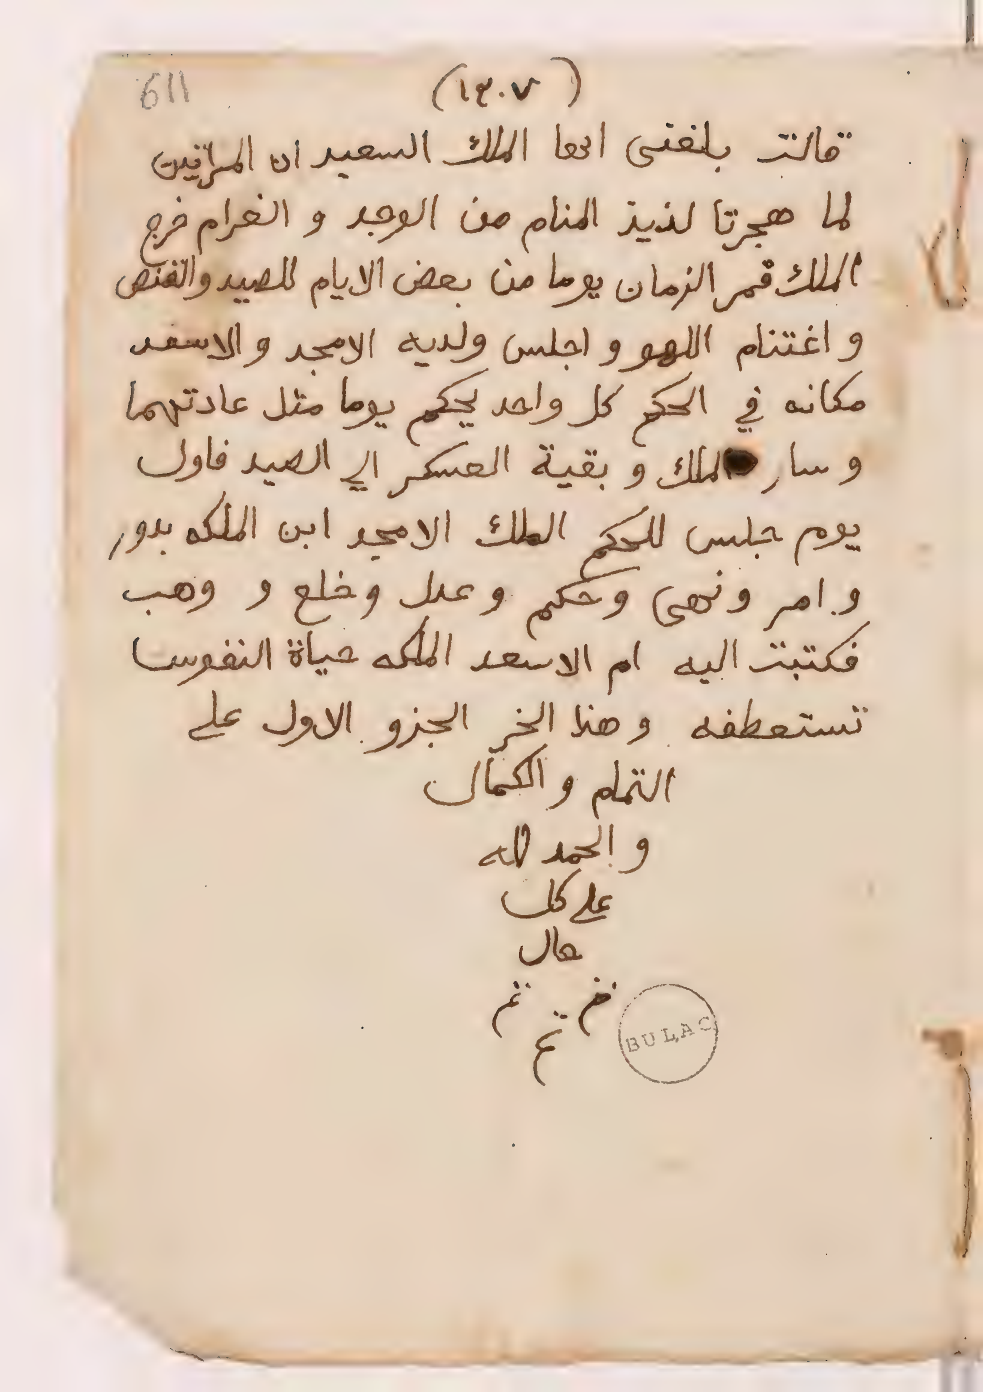 611
(١٣٠٧)
قالت بلغنى ايها الملك السعيد ان المراتين
لما هجرتا لذيذ المنام من الوجد و الغرام خرج
الملك قمر الزمان يوما من بعض الايام للصيد والقنص
و اغتنام اللهو و اجلس ولديه الامجد و الاسعد
مكانه في الحكم كل واحد يحكم يوما مثل عادتهما
و سار الملك و بقية العسكر الي الصيد فاول
يوم جلس للحكم الملك الامجد ابن الملكه بدور
و امر ونهى وحكم وعدل وخلع و وهب
فكتبت اليه ام الاسعد الملكه حياة النفوس
تستعطفه وهذا اخر الجزو الاول علي
التمام و الكمال
و الحمد لله
علي كل
حال
تم تم
تم
BULAC